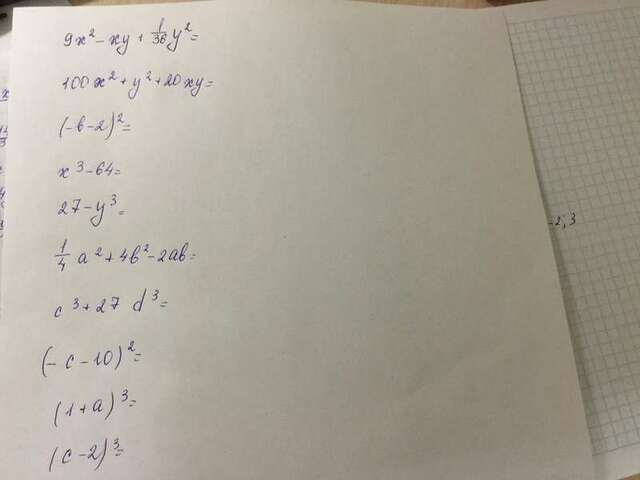 9x² - xy + 1/36 y² =
100x² + y² + 20xy =
(-b-2)² =
x³ - 64 =
27 - y³ =
1/4 a² + 4b² - 2ab =
c³ + 27 d³ =
(-c-10)² =
(1+a)³ =
(c-2)³ =
-2; 3